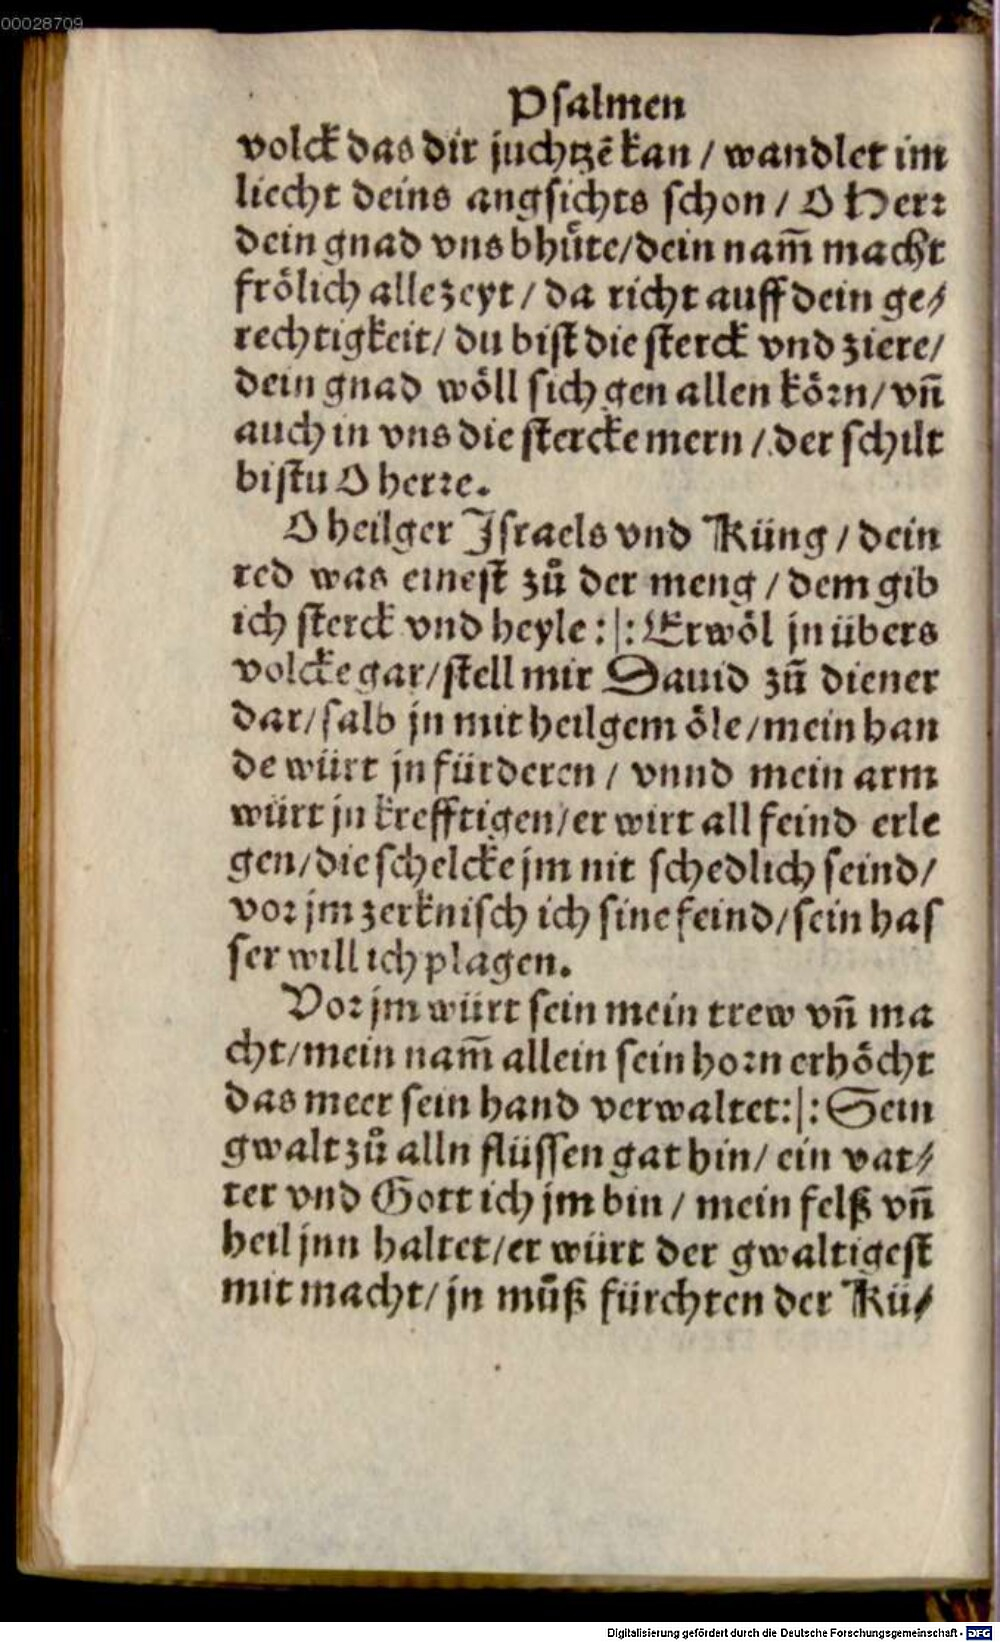 00028709
Psalmen
volck das dir juchtzẽ kan / wandlet im
liecht deins angsichts schon / O Herr
dein gnad vns bhuͤte/dein nam̃ macht
froͤlich alle zeyt / da richt auff dein ge⸗
rechtigkeit/ du bist die sterck vnd ziere/
dein gnad woͤll sich gen allen koͤrn/ vñ
auch in vns die stercke mern / der schilt
bistu O herre.
O heilger Israels vnd Küng / dein
red was einest zuͦ der meng / dem gib
ich sterck vnd heyle :|: Erwoͤl jn übers
volcke gar/stell mir Dauid zuͦ diener
dar/salb jn mit heilgem oͤle/mein han
de würt jn fürderen / vnnd mein arm
würt jn krefftigen/er wirt all feind erle
gen/die schelcke jm nit schedlich seind/
vor jm zerknisch ich sine feind/sein has
ser will ich plagen.
Vor jm würt sein mein trew vñ ma
cht/mein nam̃ allein sein horn erhoͤcht
das meer sein hand verwaltet:|: Sein
gwalt zuͦ alln flüssen gat hin/ ein vat⸗
ter vnd Gott ich jm bin / mein felß vñ
heil jnn haltet/er würt der gwaltigest
mit macht/ jn muͦß fürchten der Kü⸗
Digitalisierung gefördert durch die Deutsche Forschungsgemeinschaft - DFG